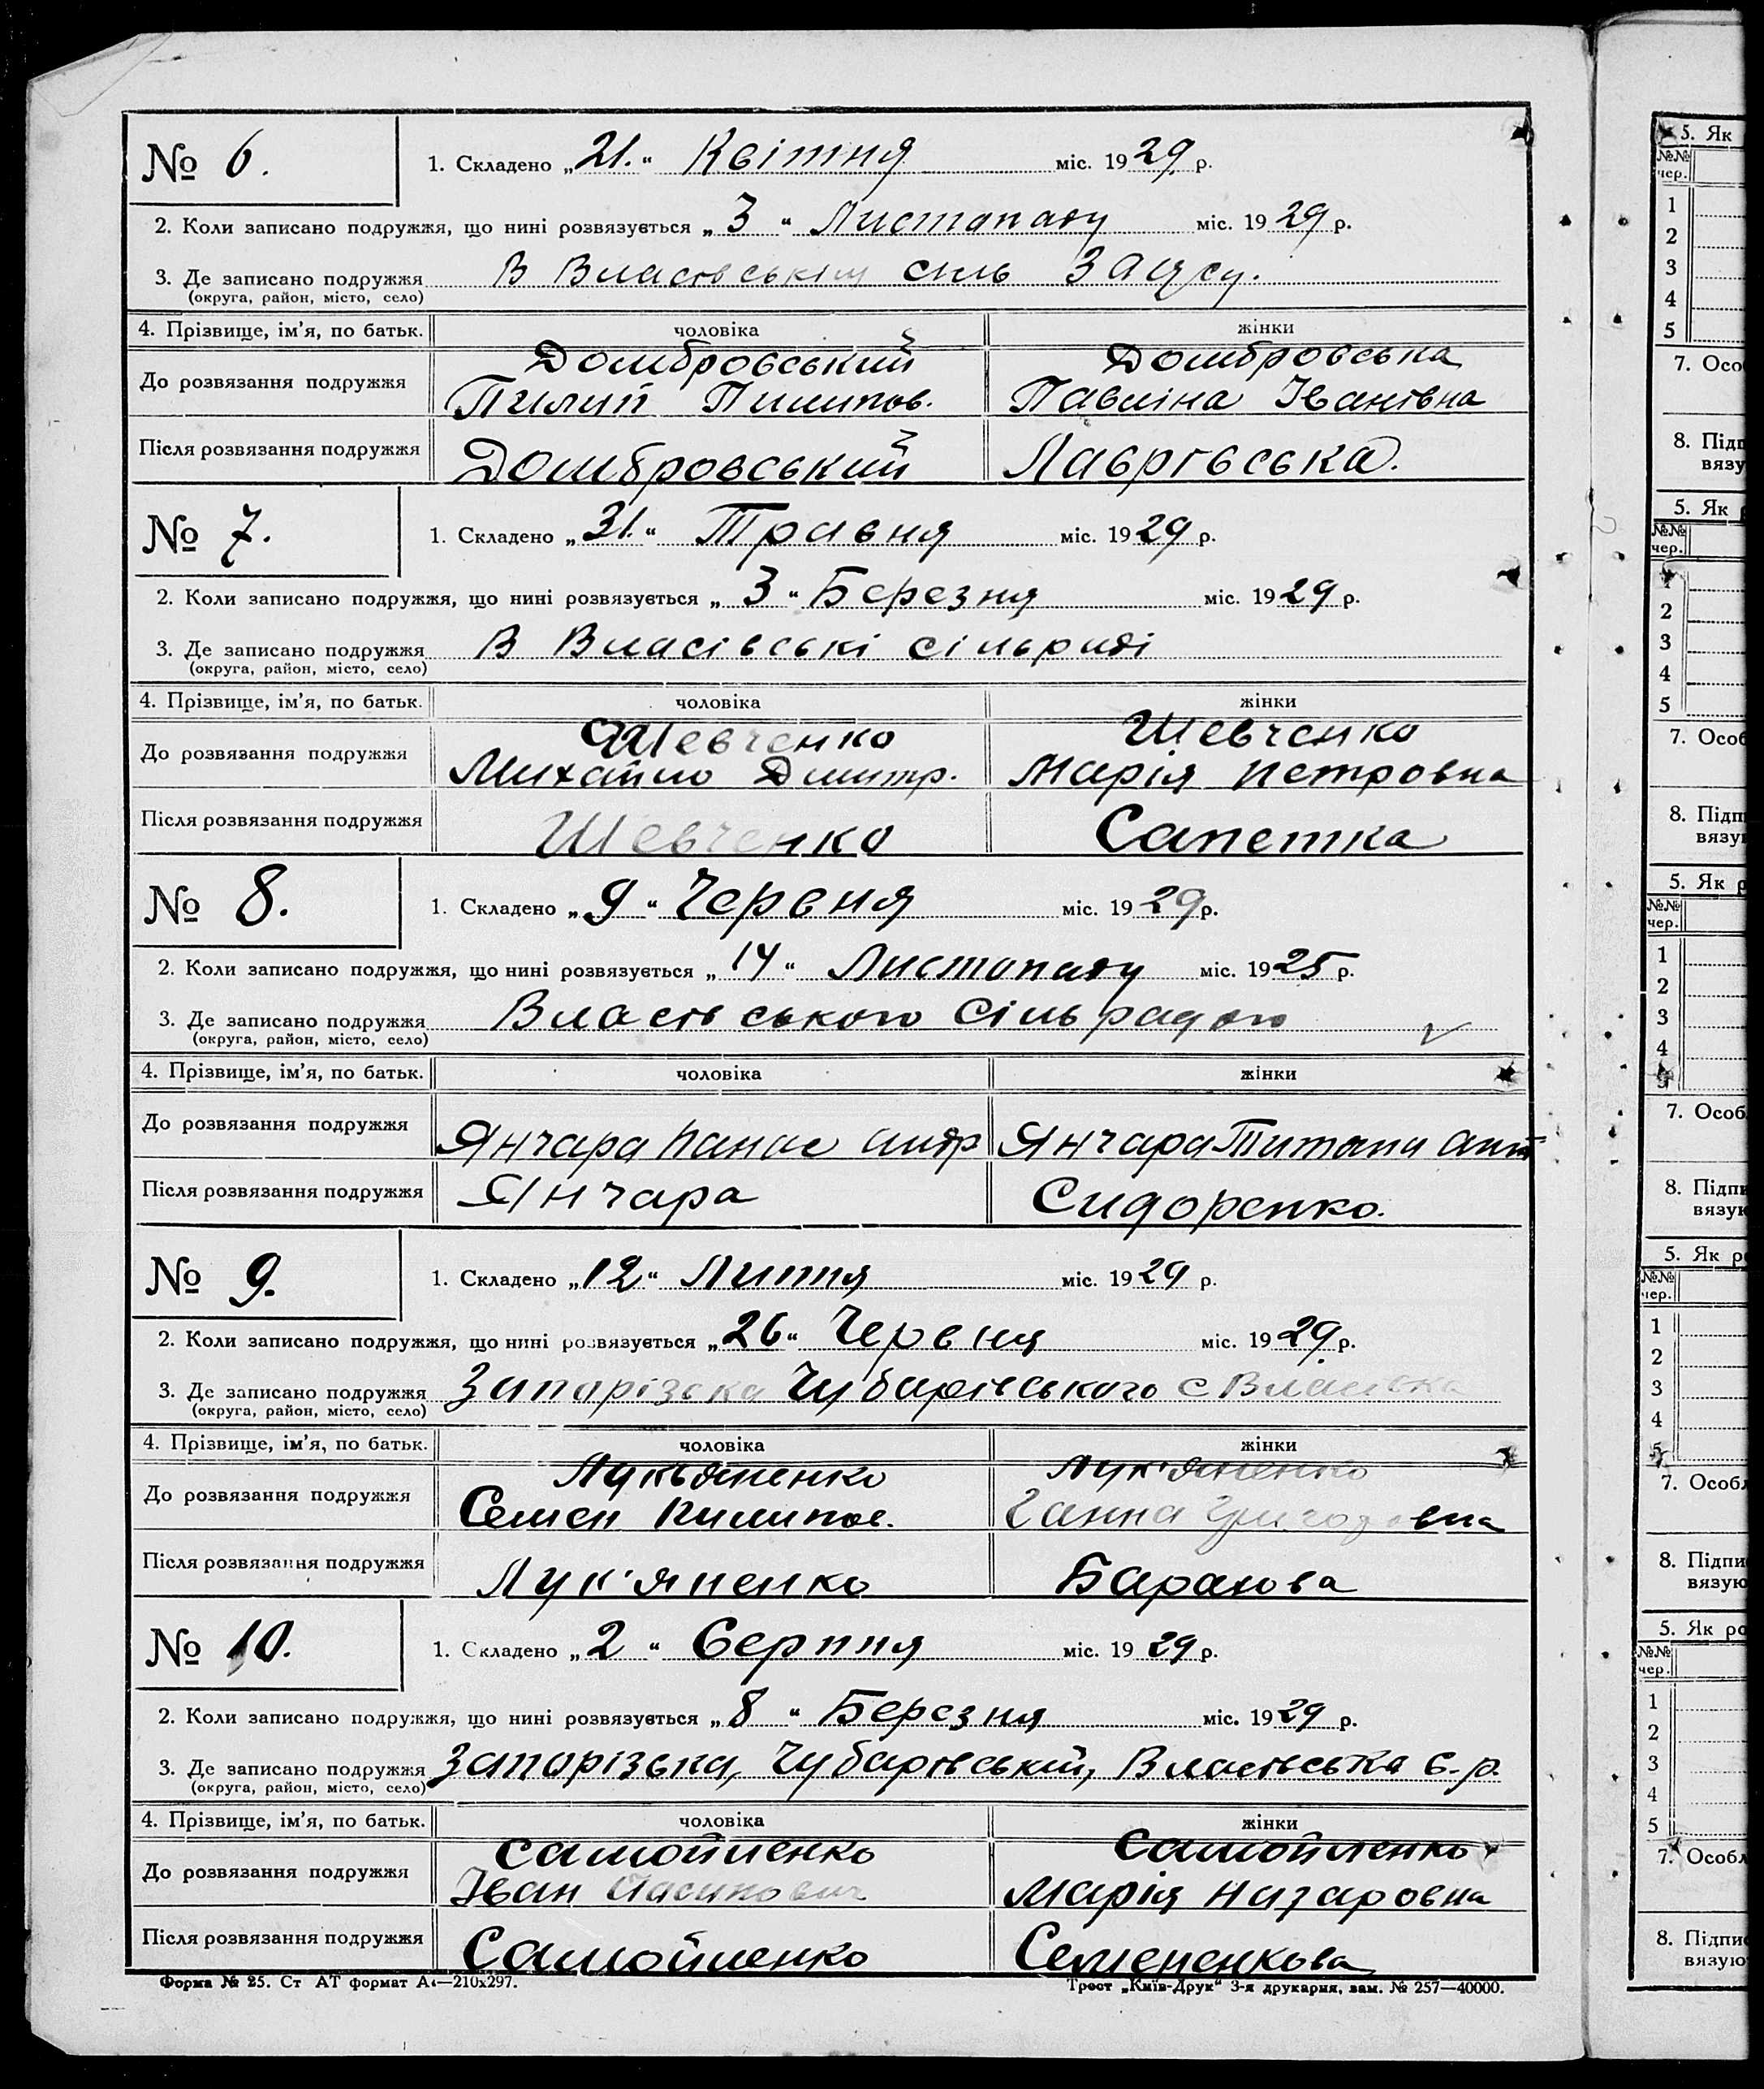 № 6.
1. Складено „21.“ Квітня міс. 1929 р.
2. Коли записано подружжя, що нині розвязується „3“ Листопаду міс. 1929 р.
3. Де записано подружжя В
(округа, район, місто, село)
4. Прізвище, ім'я, по батьк. чоловіка жінки
Домбровський Домбровська
До розвязання подружжя
Пилип Пилипов. Павліна Іванівна
Після розвязання подружжя Домбровський Лаврівська.
№ 7.
1. Складено „31.“ Травня міс. 1929 р.
2. Коли записано подружжя, що нині розвязується „3“ Березня міс. 1929 р.
3. Де записано подружжя В Власівські сільраді
(округа, район, місто, село)
4. Прізвище, ім'я, по батьк. чоловіка жінки
Шевченко Шевченко
До розвязання подружжя
Михайло Дмитр. Марія Петровна
Після розвязання подружжя Шевченко Сапетка
№ 8.
1. Складено „9“ Червня міс. 1929 р.
2. Коли записано подружжя, що нині розвязується „14“ Листопаду міс. 1925 р.
3. Де записано подружжя Власівського Сільрадою
(округа, район, місто, село)
4. Прізвище, ім'я, по батьк. чоловіка жінки
До розвязання подружжя Янчара Панас Андр Янчара
Після розвязання подружжя Янчара Сидоренко.
№ 9.
1. Складено „12“ Липня міс. 1929 р.
2. Коли записано подружжя, що нині розвязується „26“ Червня міс. 1929 р.
3. Де записано подружжя Запорізька Чубарівського с Власівка
(округа, район, місто, село)
4. Прізвище, ім'я, по батьк. чоловіка жінки
Лукьяненко Лук'яненко
До розвязання подружжя
Семен Пилипов. Ганна Григоровна
Після розвязання подружжя Лук'яненко Баранова
№ 10.
1. Складено „2“ Серпня міс. 1929 р.
2. Коли записано подружжя, що нині розвязується „8“ Березня міс. 1929 р.
3. Де записано подружжя Запорізька, Чубарівський, Власівська с.-р.
(округа, район, місто, село)
4. Прізвище, ім'я, по батьк. чоловіка жінки
Самойленко Самойленко
До розвязання подружжя
Іван Марія Назаровна
Після розвязання подружжя Самойленко Семененкова
Форма № 25. Ст АТ формат А4—210х297. Трест „Київ-Друк“ 3-я друкарня, зам. № 257—40000.
5. Як
№№
чер.
1
2
3
4
5
7. Осо
8. Підп
вязу
5. Як
№№
чер.
2
3
4
5
7. Особ
8. Підп
вязу
5. Як р
№№
чер.
1
2
3
4
5
7. Особ
8. Підпи
вязую
5. Як ро
№№
чер.
1
2
3
4
5
7. Особл
8. Підпи
вязую
5. Як ро
№№
чер.
1
2
3
4
5
7. Особл
8. Підпис
вязую